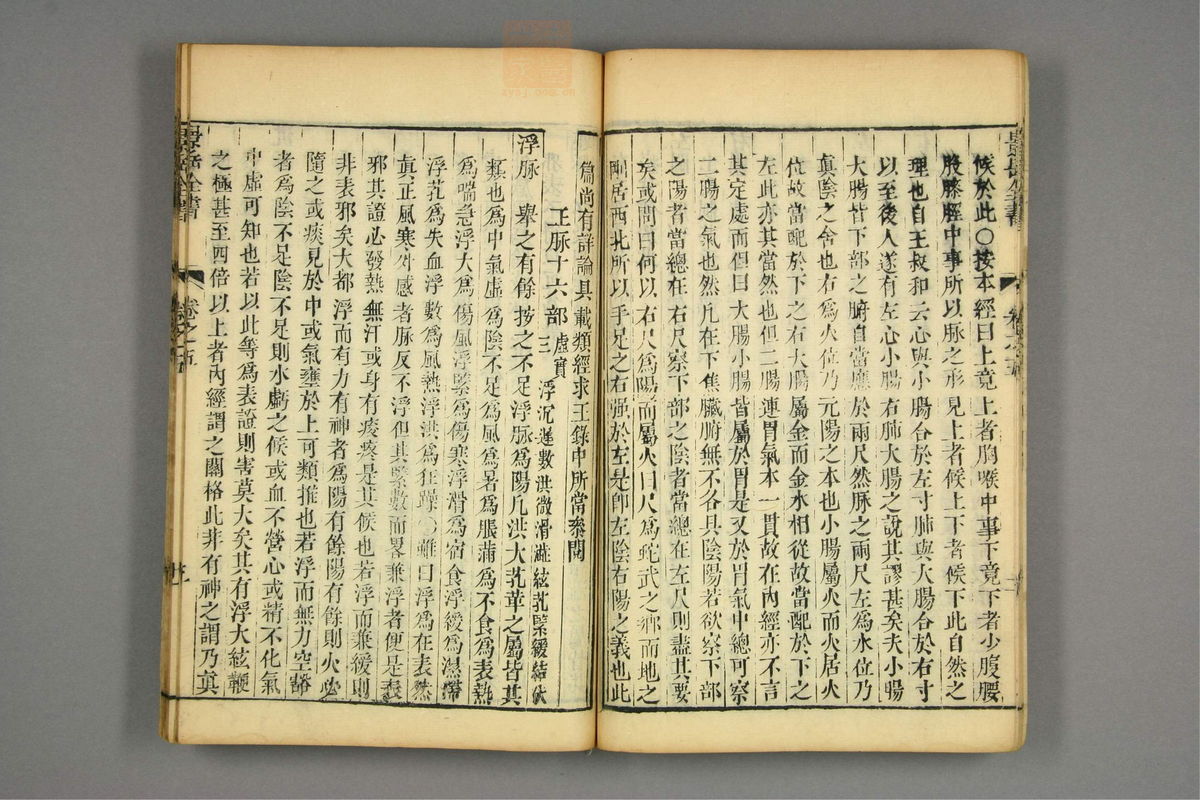 候於此○按本經曰上竟上者胸喉中事下竟下者少腹腰
股膝脛中事所以脉之形見上者候上下者候下此自然之
理也自王叔和云心與小腸合於左寸肺與大腸合於右寸
以至後人遂有左心小腸右肺大腸之說其謬甚矣夫小腸
大腸皆下部之腑自當應於兩尺然脉之兩尺左爲水位乃
眞陰之舍也右爲火位乃元陽之本也小腸屬火而火居火
位故當配於下之右大腸屬金而金水相從故當配於下之
左此亦其當然也但二腸連胃氣本一貫故在內經亦不言
其定處而但曰大腸小腸皆屬於胃是又於胃氣中總可察
二腸之氣也然凡在下焦臟腑無不各具陰陽若欲察下部
之陽者當總在右尺察下部之陰者當總在左尺則盡其要
矣或問曰何以右尺爲陽而屬火曰尺爲蛇武之鄉而地之
剛居西北所以手足之右强於左是卽左陰右陽之義也此
篇尚有詳論具載類經求正錄中所當叅閱
正脉十六部 浮沉遲數洪微滑濇絃芤緊緩結伏
虛實 三
浮脉 舉之有餘按之不足浮脉爲陽凡洪大芤革之屬皆其
類也爲中氣虛爲陰不足爲風爲暑爲脹滿爲不食爲表熱
爲喘急浮大爲傷風浮緊爲傷寒浮滑爲宿食浮緩爲濕滯
浮芤爲失血浮數爲風熱浮洪爲狂躁○雖曰浮爲在表然
眞正風寒外感者脉反不浮但其緊數而畧兼浮者便是表
邪其證必發熱無汗或身有痠疼是其候也若浮而兼緩則
非表邪矣大都浮而有力有神者爲陽有餘陽有餘則火必
隨之或痰見於中或氣壅於上可類推也若浮而無力空豁
者爲陰不足陰不足則水虧之候或血不營心或精不化氣
中虛可知也若以此等爲表證則害莫大矣其有浮大絃鞕
之極甚至四倍以上者內經謂之關格此非有神之謂乃眞
景岳全書
卷之五